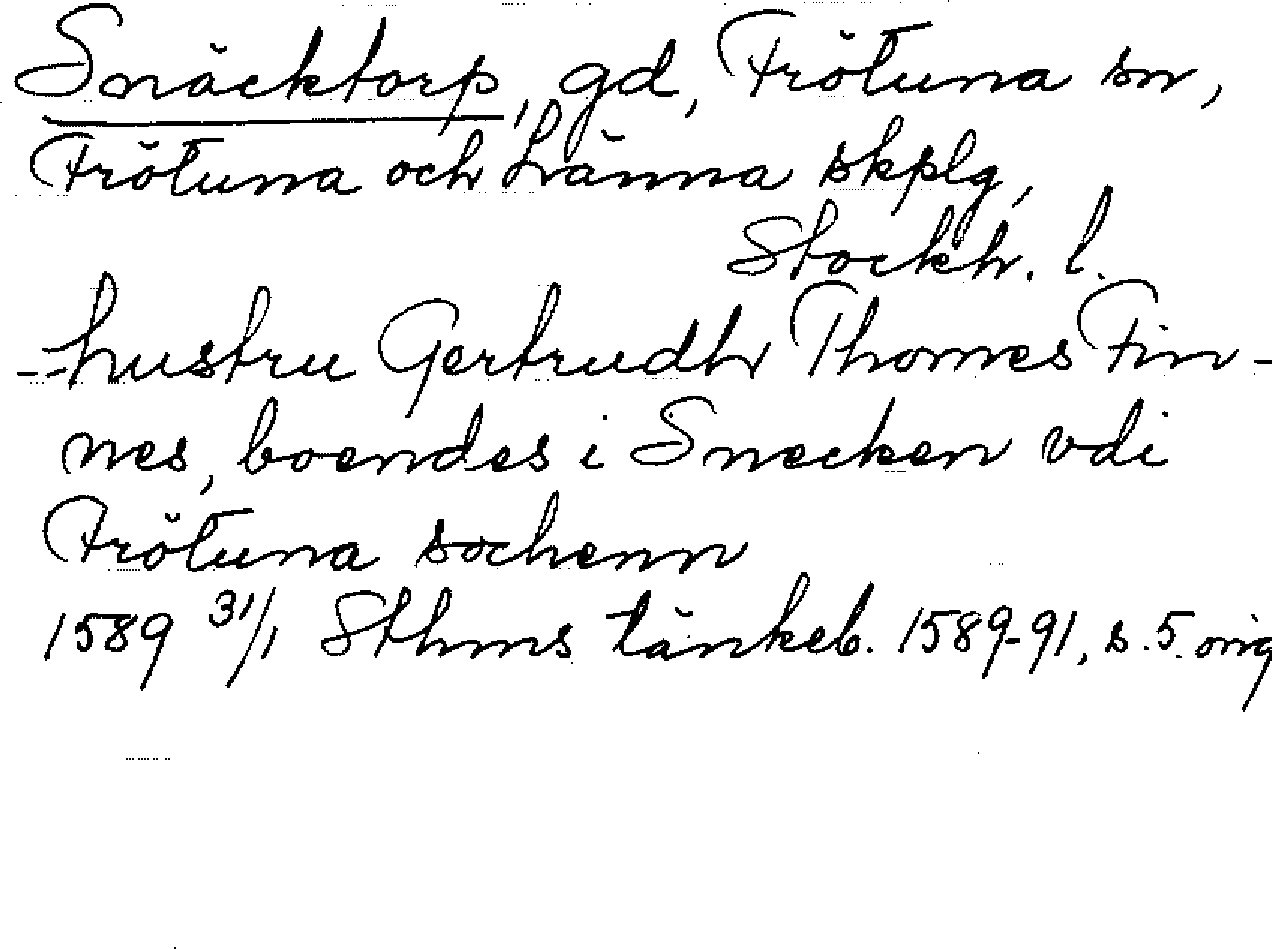 Snäcktorp, gd, Frötuna sn,
Frötuna och Länna skplg,
Stockh. l.
-- hustru Gertrudh Thomes Fin-
nes, boendes i Snecken vdi
Frötuna sochenn
1589 31/1 Sthms tänkeb. 1589-91, s. 5. orig